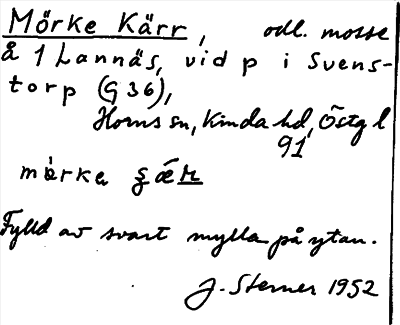 Mörke Kärr, odl. mosse
å 1 Lannäs, vid p i Svens-
torp (G 36),
Horns sn, Kinda hd, Östg l
91
mörke
Fylld av svart mylla på ytan.
J. Sterner 1952